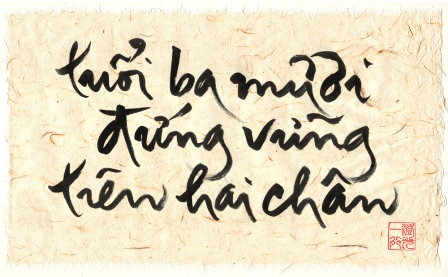 tuổi ba mươi
đứng vững
trên hai chân